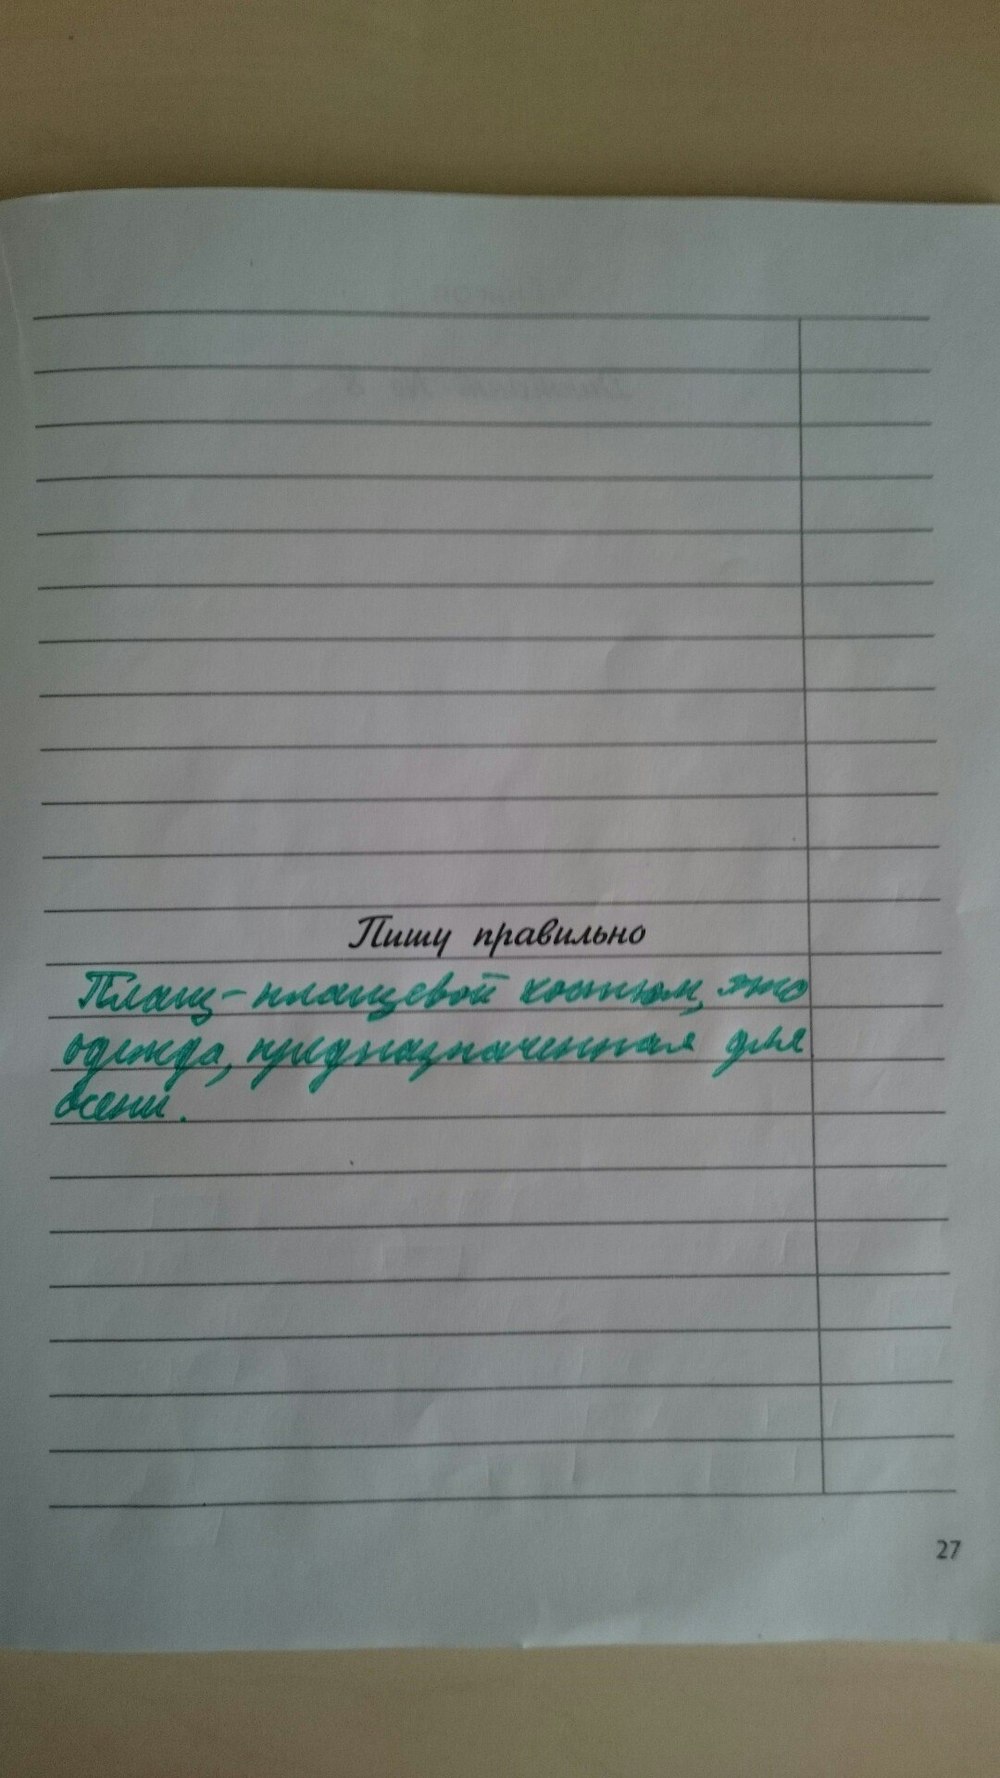 Пишу правильно
Плащ - плащевой костюм, это
одежда, предназначенная для
осени.
27